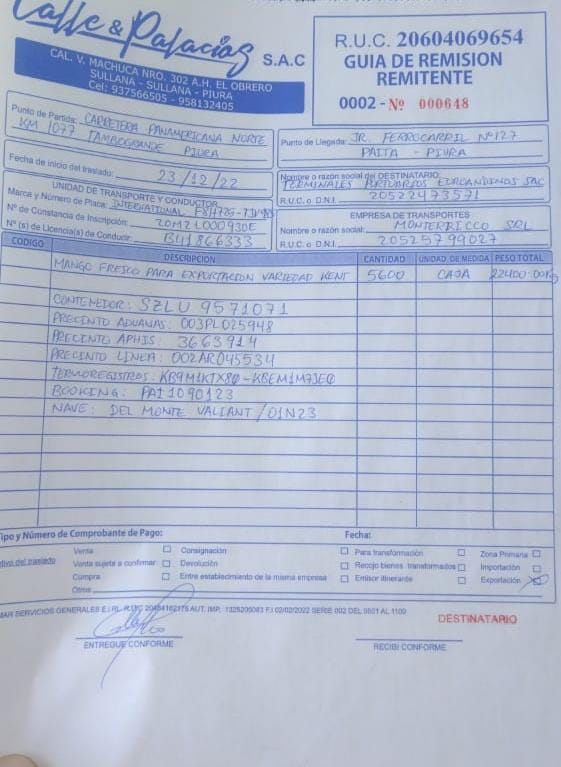 Calle & Palacios S.A.C
CAL. V. MACHUCA NRO. 302 A.H. EL OBRERO
SULLANA - SULLANA - PIURA
Cel: 937566505 - 958132405
R.U.C. 20604069654
GUIA DE REMISION
REMITENTE
0002 - Nº 000648
Punto de Partida: CARRETERA PANAMERICANA NORTE
KM 1077 TAMBOGRANDE PIURA
Fecha de inicio del traslado: 23/12/22
Punto de Llegada: JR. FERROCARRIL Nº127
PAITA - PIURA
UNIDAD DE TRANSPORTE Y CONDUCTOR
Marca y Número de Placa: INTERNATIONAL
Nº de Constancia de Inscripción:
Nº (s) de Licencia(s) de Conducir: B41866333
Nombre o razón social del DESTINATARIO:
TERMINALES PORTUARIOS EUROANDINOS SAC
R.U.C. o D.N.I. 20522473571
EMPRESA DE TRANSPORTES
Nombre o razón social: MONTERRICCO SRL
R.U.C. o D.N.I. 20525799027
CODIGO DESCRIPCION CANTIDAD UNIDAD DE MEDIDA PESO TOTAL
MANGO FRESCO PARA EXPORTACION VARIEDAD KENT 5600 CAJA 22400.00Kg
CONTENEDOR: SZLU 9571071
PRECINTO ADUANAS: 003PL025948
PRECINTO APHIS: 3663914
PRECINTO LINEA: 002AR045534
TERMOREGISTROS: KB9M1K1X80 - KBEM1M73E0
BOOKING: PAI1090123
NAVE: DEL MONTE VALIANT / 01N23
Tipo y Número de Comprobante de Pago: Fecha:
Motivo del traslado
Venta Consignación Para transformación Zona Primaria
Venta sujeta a confirmar Devolución Recojo bienes transformados Importación
Compra Entre establecimiento de la misma empresa Emisor itinerante Exportación X
Otros
MAR SERVICIOS GENERALES E.I.RL. R.UC. AUT. IMP. F.I 02/02/2022 SERIE 002 DEL 0601 AL 1100
DESTINATARIO
ENTREGUE CONFORME
RECIBI CONFORME